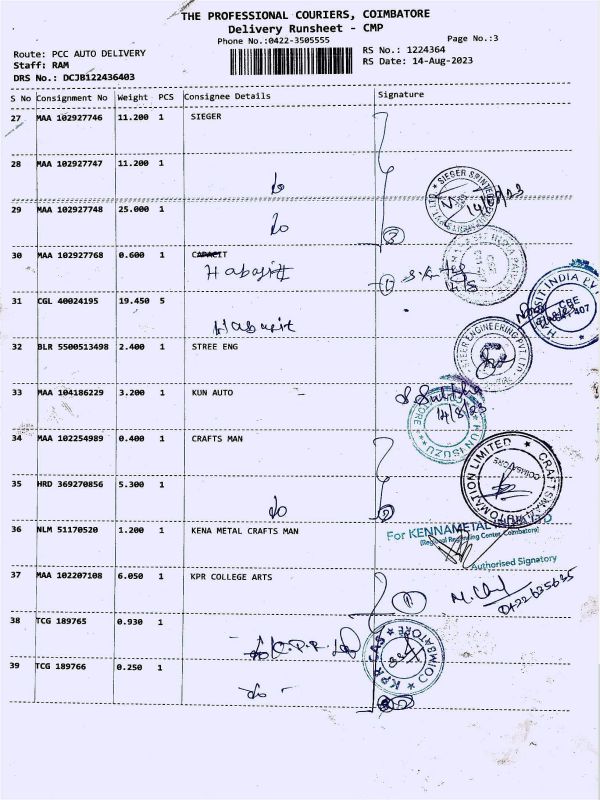 THE PROFESSIONAL COURIERS, COIMBATORE
Delivery Runsheet - CMP
Phone No.:0422-3505555
Page No.:3
Route: PCC AUTO DELIVERY
RS No.: 1224364
Staff: RAM
RS Date: 14-Aug-2023
DRS No.: DCJB122436403
S No Consignment No Weight PCS Consignee Details Signature
27 MAA 102927746 11.200 1 SIEGER
28 MAA 102927747 11.200 1
do
29 MAA 102927748 25.000 1
do
3
30 MAA 102927768 0.600 1
1
31 CGL 40024195 19.450 5
32 BLR 5500513498 2.400 1 STREE ENG
33 MAA 104186229 3.200 1 KUN AUTO
14/8/23
KUN ISUZU
34 MAA 102254989 0.400 1 CRAFTS MAN
CRAFTSMAN AUTOMATION LIMITED
COIMBATORE
35 HRD 369270856 5.300 1
do
2
36 NLM 51170520 1.200 1 KENA METAL CRAFTS MAN
For KENNAMETAL
Authorised Signatory
37 MAA 102207108 6.050 1 KPR COLLEGE ARTS
1
38 TCG 189765 0.930 1
KPR CAS
COIMBATORE
39 TCG 189766 0.250 1
do